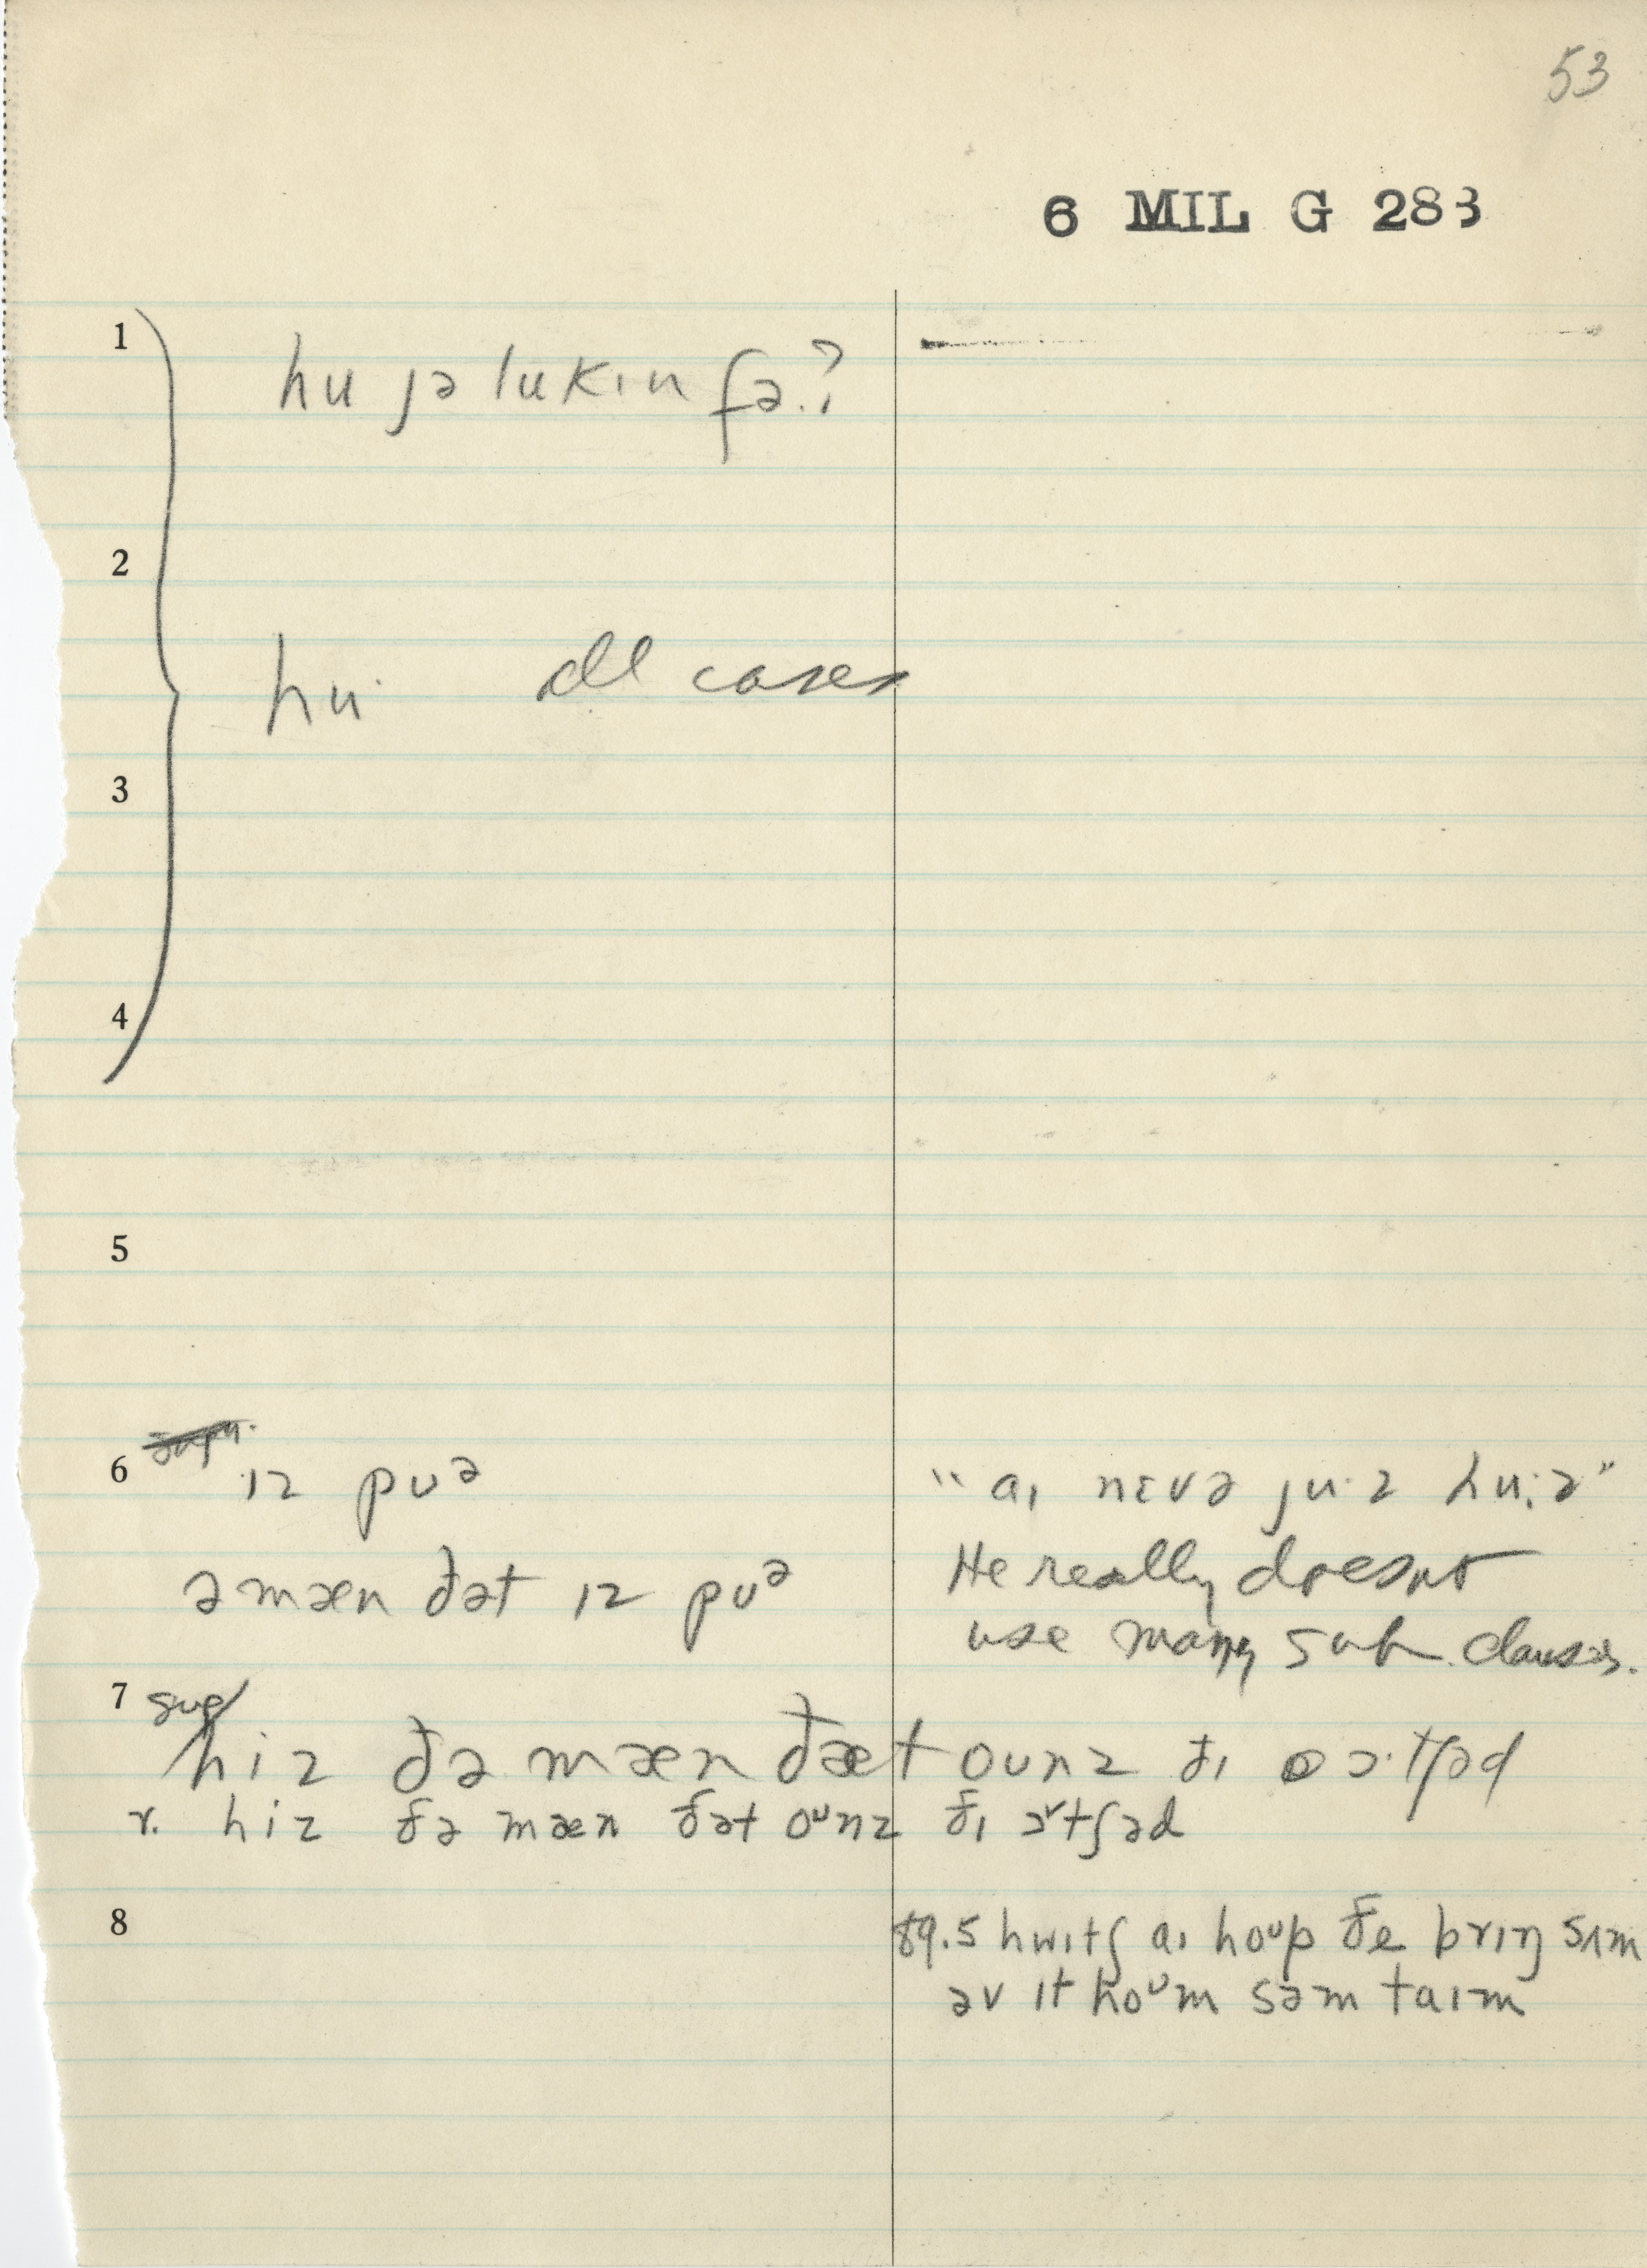 53
6 MIL G 283
1
hu jə lukɪn fə.?
2
hu· all cases
3
4
5
6 ɪz puᵊ
ə mæn ðət ɪz puᵊ
"aɪ nɛvə ju·z hu:z"
He really doesnt
use many sub. clauses.
7 sug/
hiz ðə mæn ðæt ounz ðɪ ɔ·tʃəd
r. hiz ðə mæn ðət oᵘnz ðɪ ɔrtʃəd
8
89.5 hwɪtʃ aɪ hoᵘp ðe brɪŋ sʌm
əv ɪt hoᵘm səm taɪm